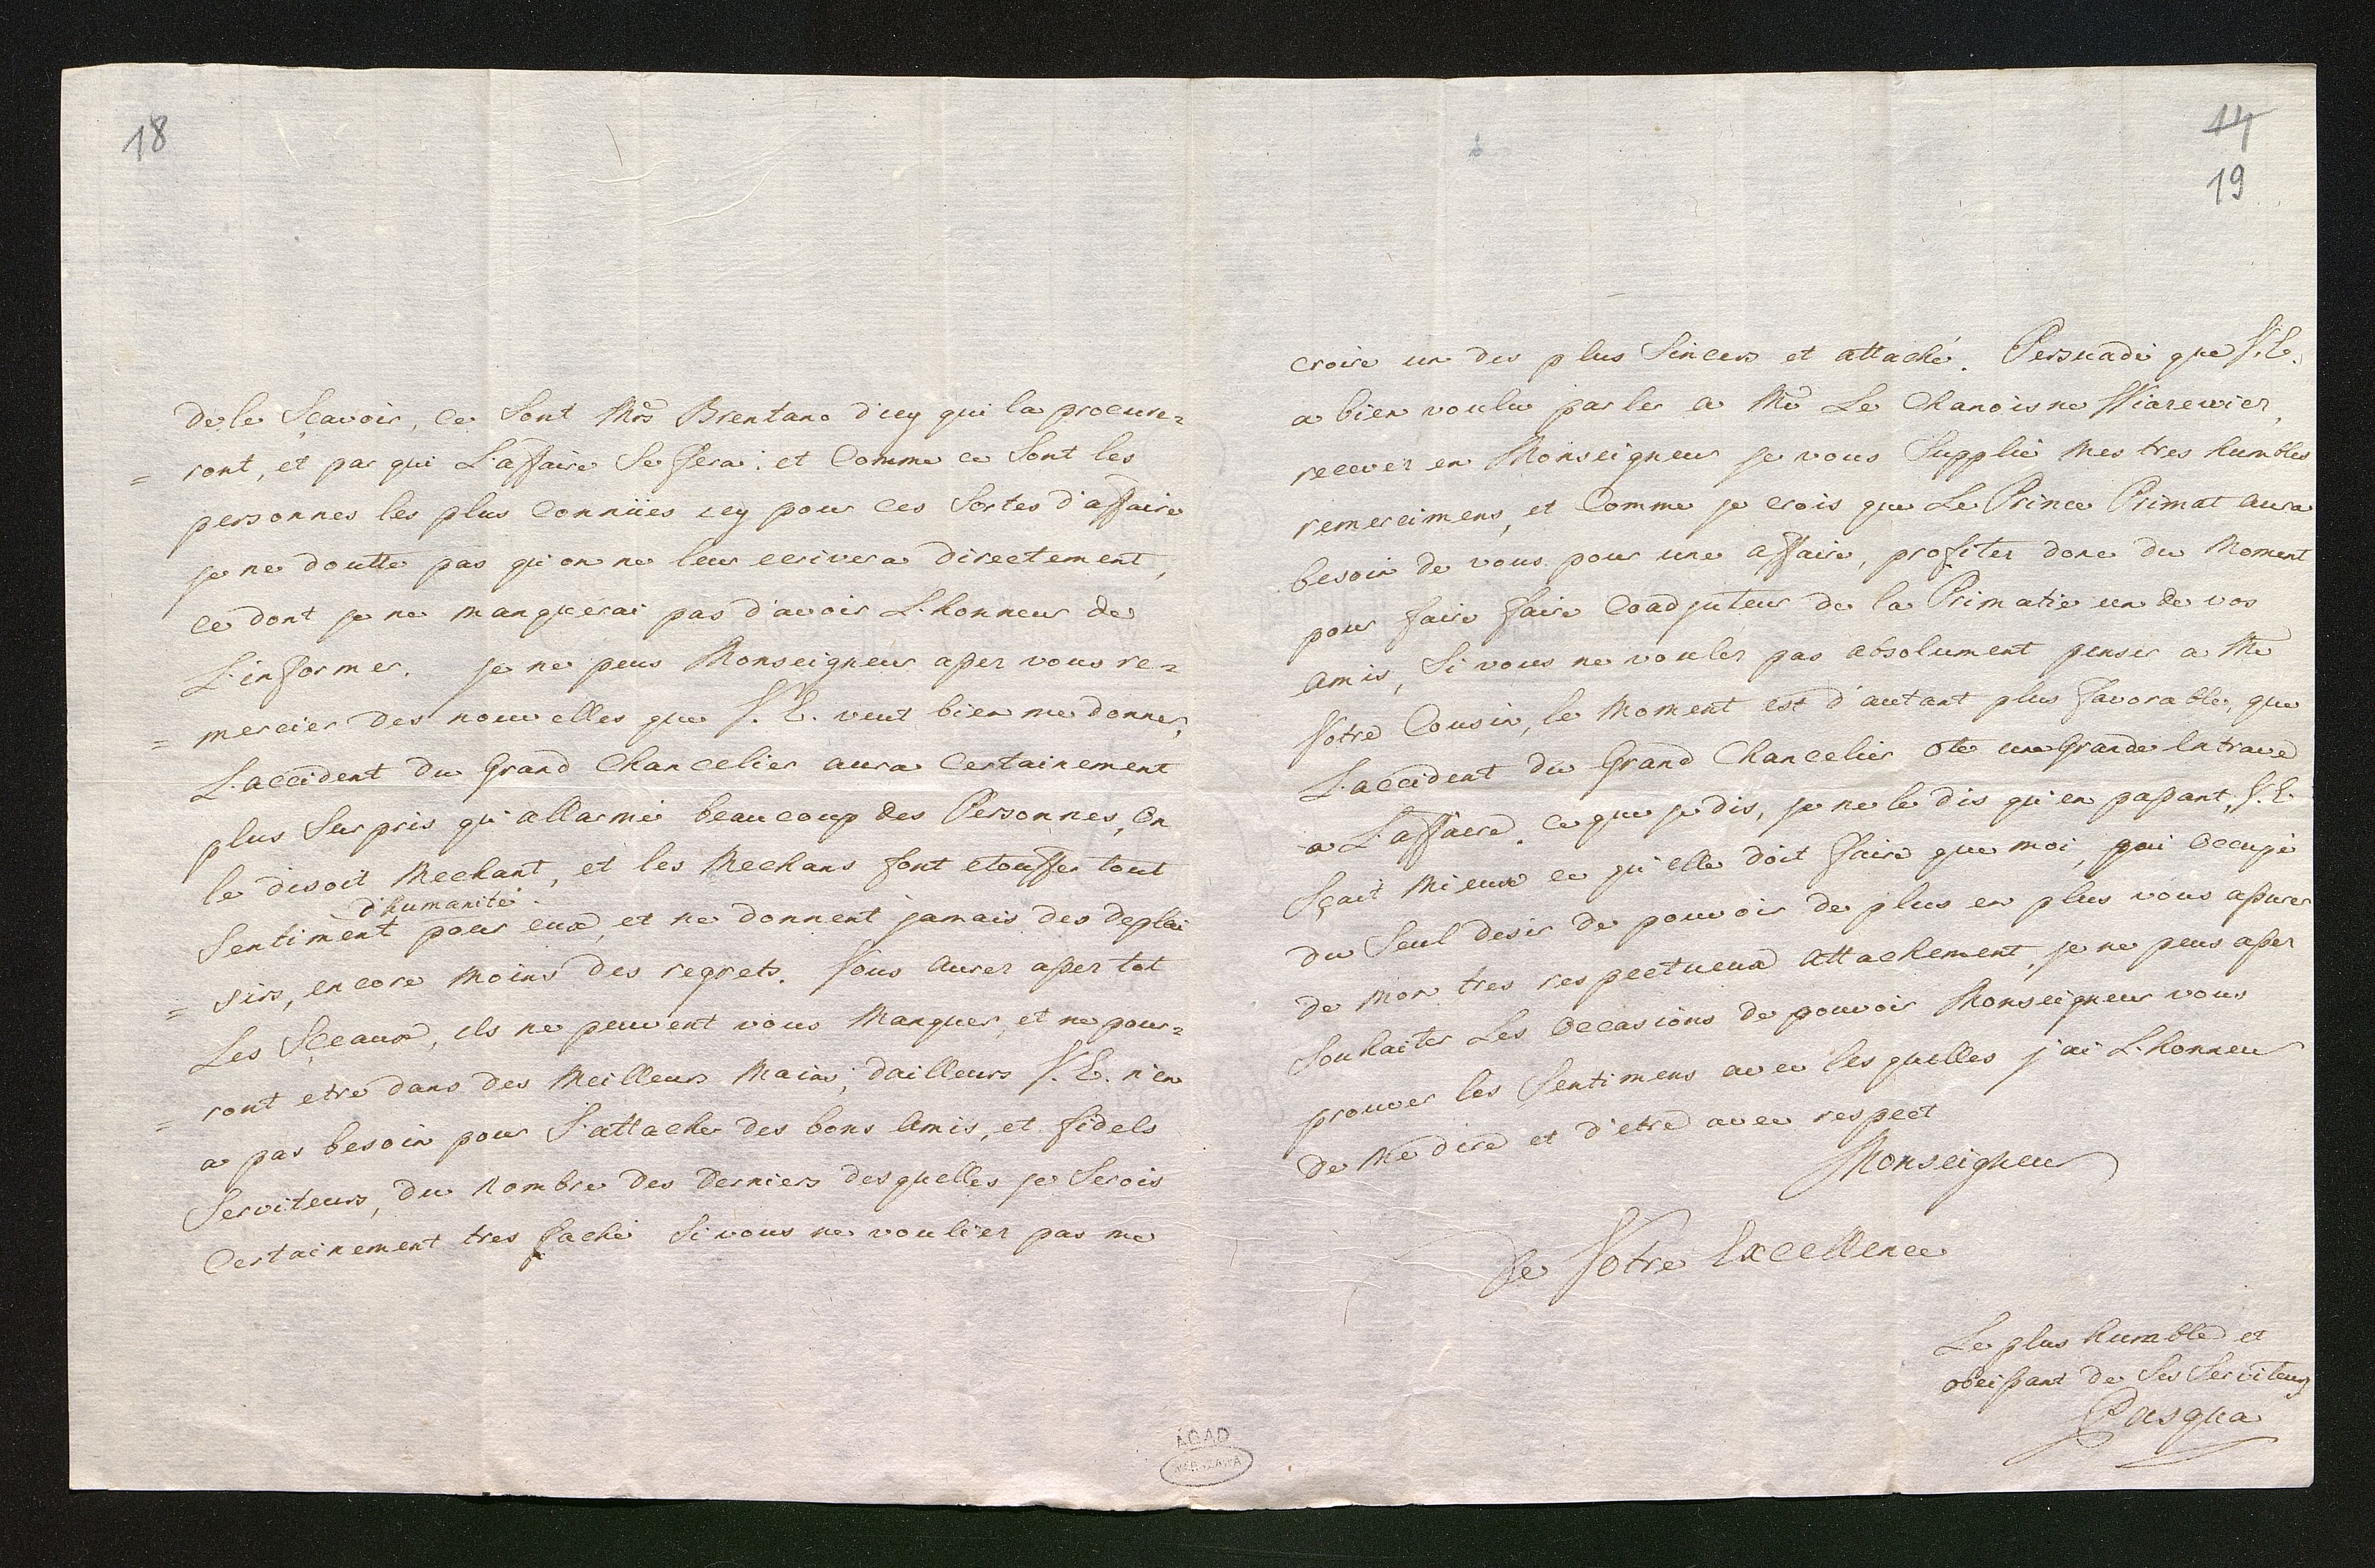 18
de le Sçavoir, ce Sont Mrs Brentano d'icy qui la procure=
= ront, et par qui L'affaire Se ffera: et Comme ce Sont les
personnes les plus Connües icy pour ces Sortes d'affaire
je ne doutte pas qu'on ne leur ecrivera directement,
ce dont je ne manquerai pas d'avoir L'honneur de
L'informer. je ne peus Monseigneur assez vous re=
= mercier des nouvelles que V. E. veut bien me donner,
L'accident du Grand Chancelier aura Certainement
plus Surpris qu'allarmé beaucoup des Personnes, On
le disoit Mechant, et les Mechans font etouffer tout
d'humanité
Sentiment pour eux, et ne donnent jamais des deplai
= sirs, encore moins des regrets. Vous Aurez assez tot
Les Sçeaux, ils ne peuvent vous Manquer, et ne pour=
= ront etre dans des Meilleurs Mains; dailleurs V. E. n'en
a pas besoin pour S'attacher des bons Amis, et fidels
Serviteurs, du Nombre des Derniers desquelles je Serois
Certainement tres faché Si vous ne vouliez pas me
14
19
croire un des plus Sincers et attaché. Persuadé que V. E.
a bien voulu parler a Mr Le Chanoisne Wiarewiez,
recevez en Monseigneur je vous Supplie Mes tres humbles
remercimens, et Comme je crois que Le Prince Primat Aura
besoin de vous pour une affaire, profitez donc du Moment
pour faire ffaire Coadjuteur de la Primatie un de vos
Amis, Si vous ne voulez pas absolument penser a Mr
Votre Cousin, le Moment est d'autant plus ffavorable, que
L'accident du Grand Chancelier ote une Grande Entrave
a L'affaire. ce que je dis, je ne le dis qu'en passant, V. E
Sçait Mieux ce qu'elle doit ffaire que moi, qui Occupé
du Seul desir de pouvoir de plus en plus vous assurer
de Mon tres respectueux Attachement, je ne peus assez
Souhaiter Les Occasions de pouvoir Monseigneur vous
prouver les Sentimens avec lesquelles j'ai L'honneur
de Me dire et d'etre avec respect
Monseigneur
De Votre Excellence
Le plus humble et
obeissant de Ses Serviteurs
Pasqua
AGAD
WARSZAWA